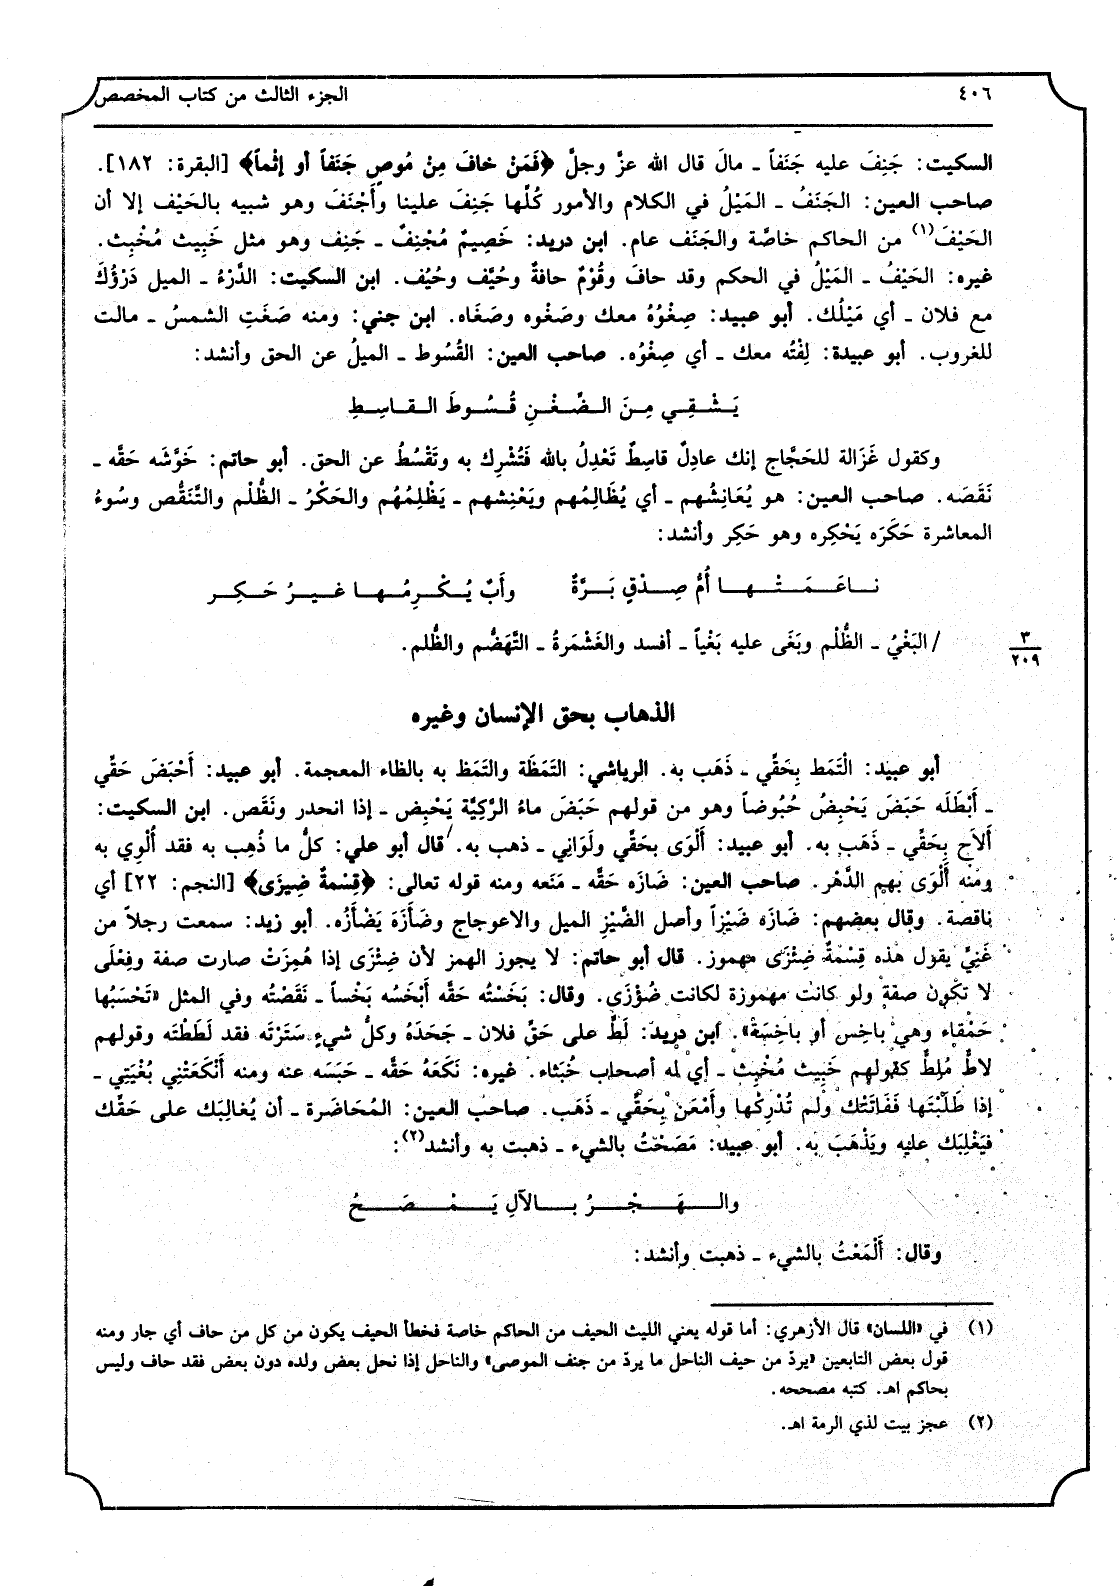 ٤٠٦ الجزء الثالث من كتاب المخصص
السكيت: جَنِفَ عليه جَنَفاً ـ مالَ قال الله عزَّ وجلَّ ﴿فَمَنْ خافَ مِنْ مُوصٍ جَنَفاً أو إثْماً﴾ [البقرة: ١٨٢].
صاحب العين: الجَنَفُ ـ المَيْلُ في الكلام والأمور كُلِّها جَنِفَ علينا وأَجْنَفَ وهو شبيه بالحَيْف إلا أن
الحَيْفَ(١) من الحاكم خاصَّة والجَنَف عام. ابن دريد: خَصِيمٌ مُجْنِفٌ ـ جَنِف وهو مثل خَبِيث مُخْبِث.
غيره: الحَيْفُ ـ المَيْلُ في الحكم وقد حافَ وقُوْمٌ حافةٌ وحُيَّف وحُيُف. ابن السكيت: الدَّرْءُ ـ الميل دَرْؤُكَ
مع فلان ـ أي مَيْلُك. أبو عبيد: صِغْوُهُ معك وصَغْوه وصَغَاه. ابن جني: ومنه صَغَتِ الشمسُ ـ مالت
للغروب. أبو عبيدة: لِفْتُه معك ـ أي صِغْوُه. صاحب العين: القُسُوط ـ الميلُ عن الحق وأنشد:
يَشْفِي مِنَ الضِّغْنِ قُسُوطَ القاسِطِ
وكقول غَزَالة للحَجَّاج إنك عادِلٌ قاسِطٌ تَعْدِلُ بالله فَتُشْرِك به وتَقْسُطُ عن الحق. أبو حاتم: خَوَّشَه حَقَّه ـ
نَقَصَه. صاحب العين: هو يُعَانِشُهم ـ أي يُظَالِمُهم ويَعْنِشهم ـ يَظْلِمُهُم والحَكْرُ ـ الظُّلْم والتَّنَقُّص وسُوءُ
المعاشرة حَكَرَه يَحْكِره وهو حَكِر وأنشد:
نـاعَـمَـتْـهـا أُمُّ صِـدْقٍ بَـرَّةٌ وأَبٌ يُـكْـرِمُـهـا غـيـرُ حَـكِـر
/ البَغْيُ ـ الظُّلْم وبَغَى عليه بَغْياً ـ أفسد والغَشْمَرةُ ـ التَّهَضُّم والظُّلم.
٣
٢٠٩
الذهاب بحق الإنسان وغيره
أبو عبيد: الْتَمَط بِحَقِّي ـ ذَهَب به. الرياشي: التَمَظَة والتَمَظ به بالظاء المعجمة. أبو عبيد: أَحْبَضَ حَقِّي
ـ أَبْطَلَه حَبَضَ يَحْبِضُ حُبُوضاً وهو من قولهم حَبَضَ ماءُ الرَّكِيَّة يَحْبِض ـ إذا انحدر ونَقَص. ابن السكيت:
أَلاَحَ بِحَقِّي ـ ذَهَب به. أبو عبيد: أَلْوَى بحَقِّي ولَوَانِي ـ ذهب به. قال أبو علي: كلُّ ما ذُهِب به فقد أُلْوِي به
ومنه أَلْوَى بهم الدَّهْر. صاحب العين: ضَازَه حَقَّه ـ مَنَعه ومنه قوله تعالى: ﴿قِسْمةٌ ضِيزَى﴾ [النجم: ٢٢] أي
ناقصة. وقال بعضهم: ضَازَه ضَيْزاً وأصل الضَّيْزِ الميل والاعوجاج وضَأَزَه يَضْأَزُه. أبو زيد: سمعت رجلاً من
غَنِيٍّ يقول هذه قِسْمةٌ ضِئْزَى مهموز. قال أبو حاتم: لا يجوز الهمز لأن ضِئْزَى إذا هُمِزَتْ صارت صفة وفِعْلَى
لا تكون صفة ولو كانت مهموزة لكانت ضُؤْزَى. وقال: بَخَسْته حَقَّه أَبْخَسُه بَخْساً ـ نَقَصْته وفي المثل «تَحْسَبُها
حَمْقاء وهي باخِس أو باخِسَة». ابن دريد: لَطَّ على حَقِّ فلان ـ جَحَدَهُ وكلُّ شيءٍ سَتَرْتَه فقد لَطَطْتَه وقولهم
لاطٌّ مُلِطٌّ كقولهم خَبِيث مُخْبِث ـ أي له أصحاب خُبَثاء. غيره: نَكَعَهُ حَقَّه ـ حَبَسَه عنه ومنه أَنْكَعَتْنِي بُغْيَتِي ـ
إذا طَلَبْتَها فَفَاتَتْك ولم تُدْرِكْها وأَمْعَن بِحَقِّي ـ ذَهَب. صاحب العين: المُحَاضَرة ـ أن يُغالِبَك على حَقِّك
فيَغْلِبَك عليه ويَذْهَبَ به. أبو عبيد: مَصَحْتُ بالشيء ـ ذهبت به وأنشد(٢):
والـهَـجْـرُ بـالآلِ يَـمْـصَـحُ
وقال: أَلْمَعْتُ بالشيء ـ ذهبت وأنشد:
(١) في «اللسان» قال الأزهري: أما قوله يعني الليث الحيف من الحاكم خاصة فخطأ الحيف يكون من كل من حاف أي جار ومنه
قول بعض التابعين «يردّ من حيف الناحل ما يردّ من جنف الموصى» والناحل إذا نحل بعض ولده دون بعض فقد حاف وليس
بحاكم اهـ. كتبه مصححه.
(٢) عجز بيت لذي الرمة اهـ.